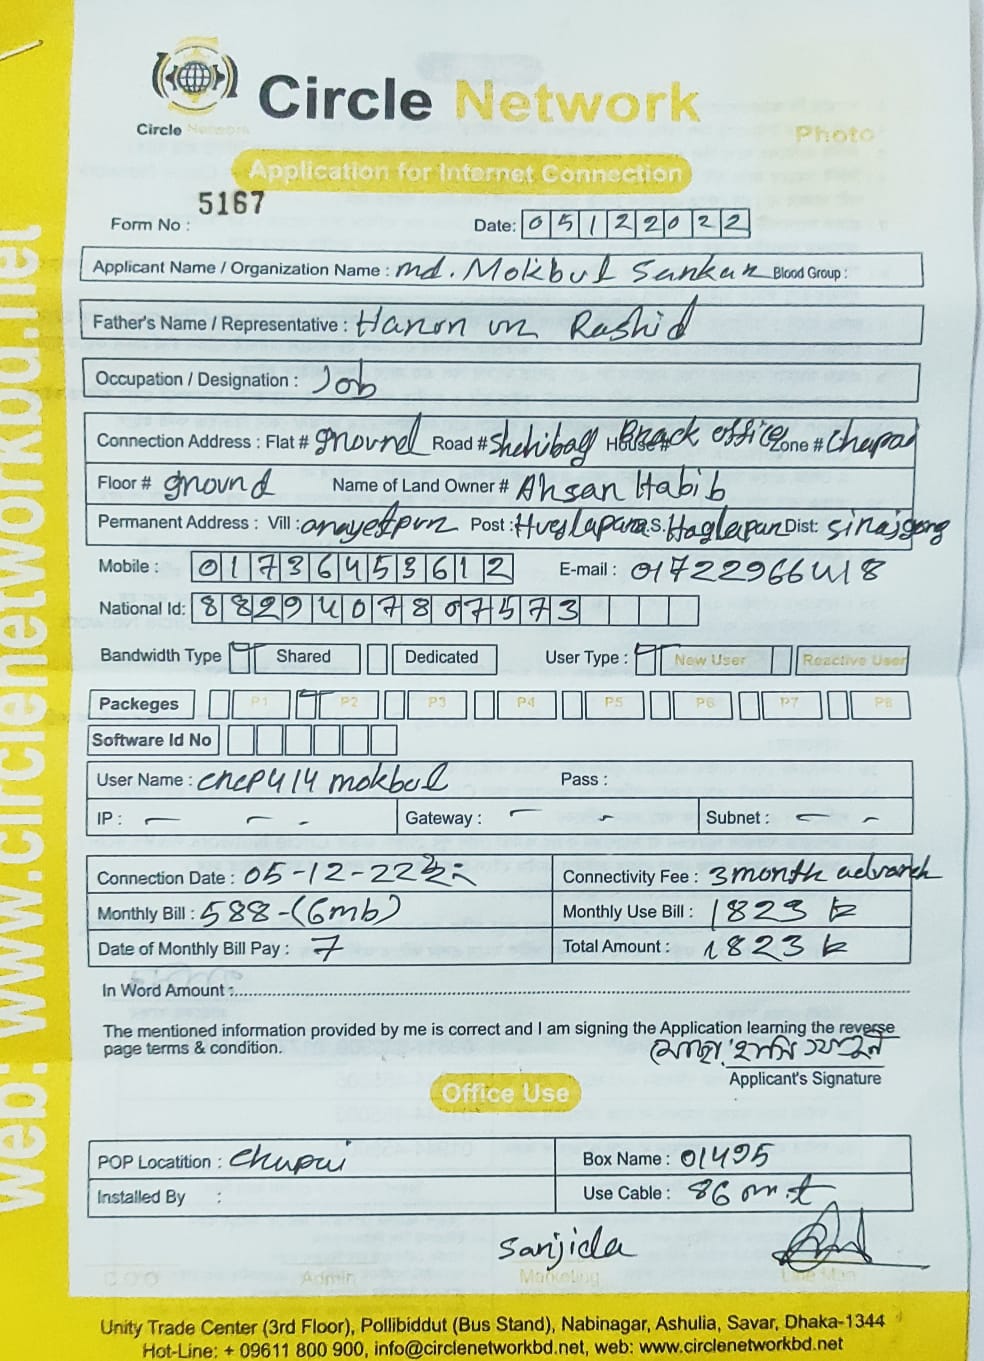 Circle Network
Circle Network
Photo
Application for Internet Connection
5167
Form No :
Date: 05122022
Applicant Name / Organization Name : md. Mokbul Sankar Blood Group :
Father's Name / Representative : Haron un Rashid
Occupation / Designation : Job
Connection Address : Flat # ground Road # Shehibag House # Brack office Zone # Chapai
Floor # ground Name of Land Owner # Ahsan Habib
Permanent Address : Vill : anayetpur Post : P.S. Dist: sirajgong
Mobile : 01736453612 E-mail : 01722966418
National Id: 8829407807573
Bandwidth Type Shared Dedicated User Type : New User Reactive User
Packeges P1 P2 P3 P4 P5 P6 P7 P8
Software Id No
User Name : cncp414 mokbul Pass :
IP : Gateway : Subnet :
Connection Date : 05-12-22 Connectivity Fee : 3 month advance
Monthly Bill : 588-(6mb) Monthly Use Bill : 1823
Date of Monthly Bill Pay : 7 Total Amount : 1823
In Word Amount :
The mentioned information provided by me is correct and I am signing the Application learning the reverse
page terms & condition.
Applicant's Signature
Office Use
POP Locatition : Chapai Box Name : 01495
Installed By : Use Cable : 86 m.t
Sanjida
C O O Admin Marketing Line Man
Unity Trade Center (3rd Floor), Pollibiddut (Bus Stand), Nabinagar, Ashulia, Savar, Dhaka-1344
Hot-Line: + 09611 800 900, info@circlenetworkbd.net, web: www.circlenetworkbd.net
web: www.circlenetworkbd.net